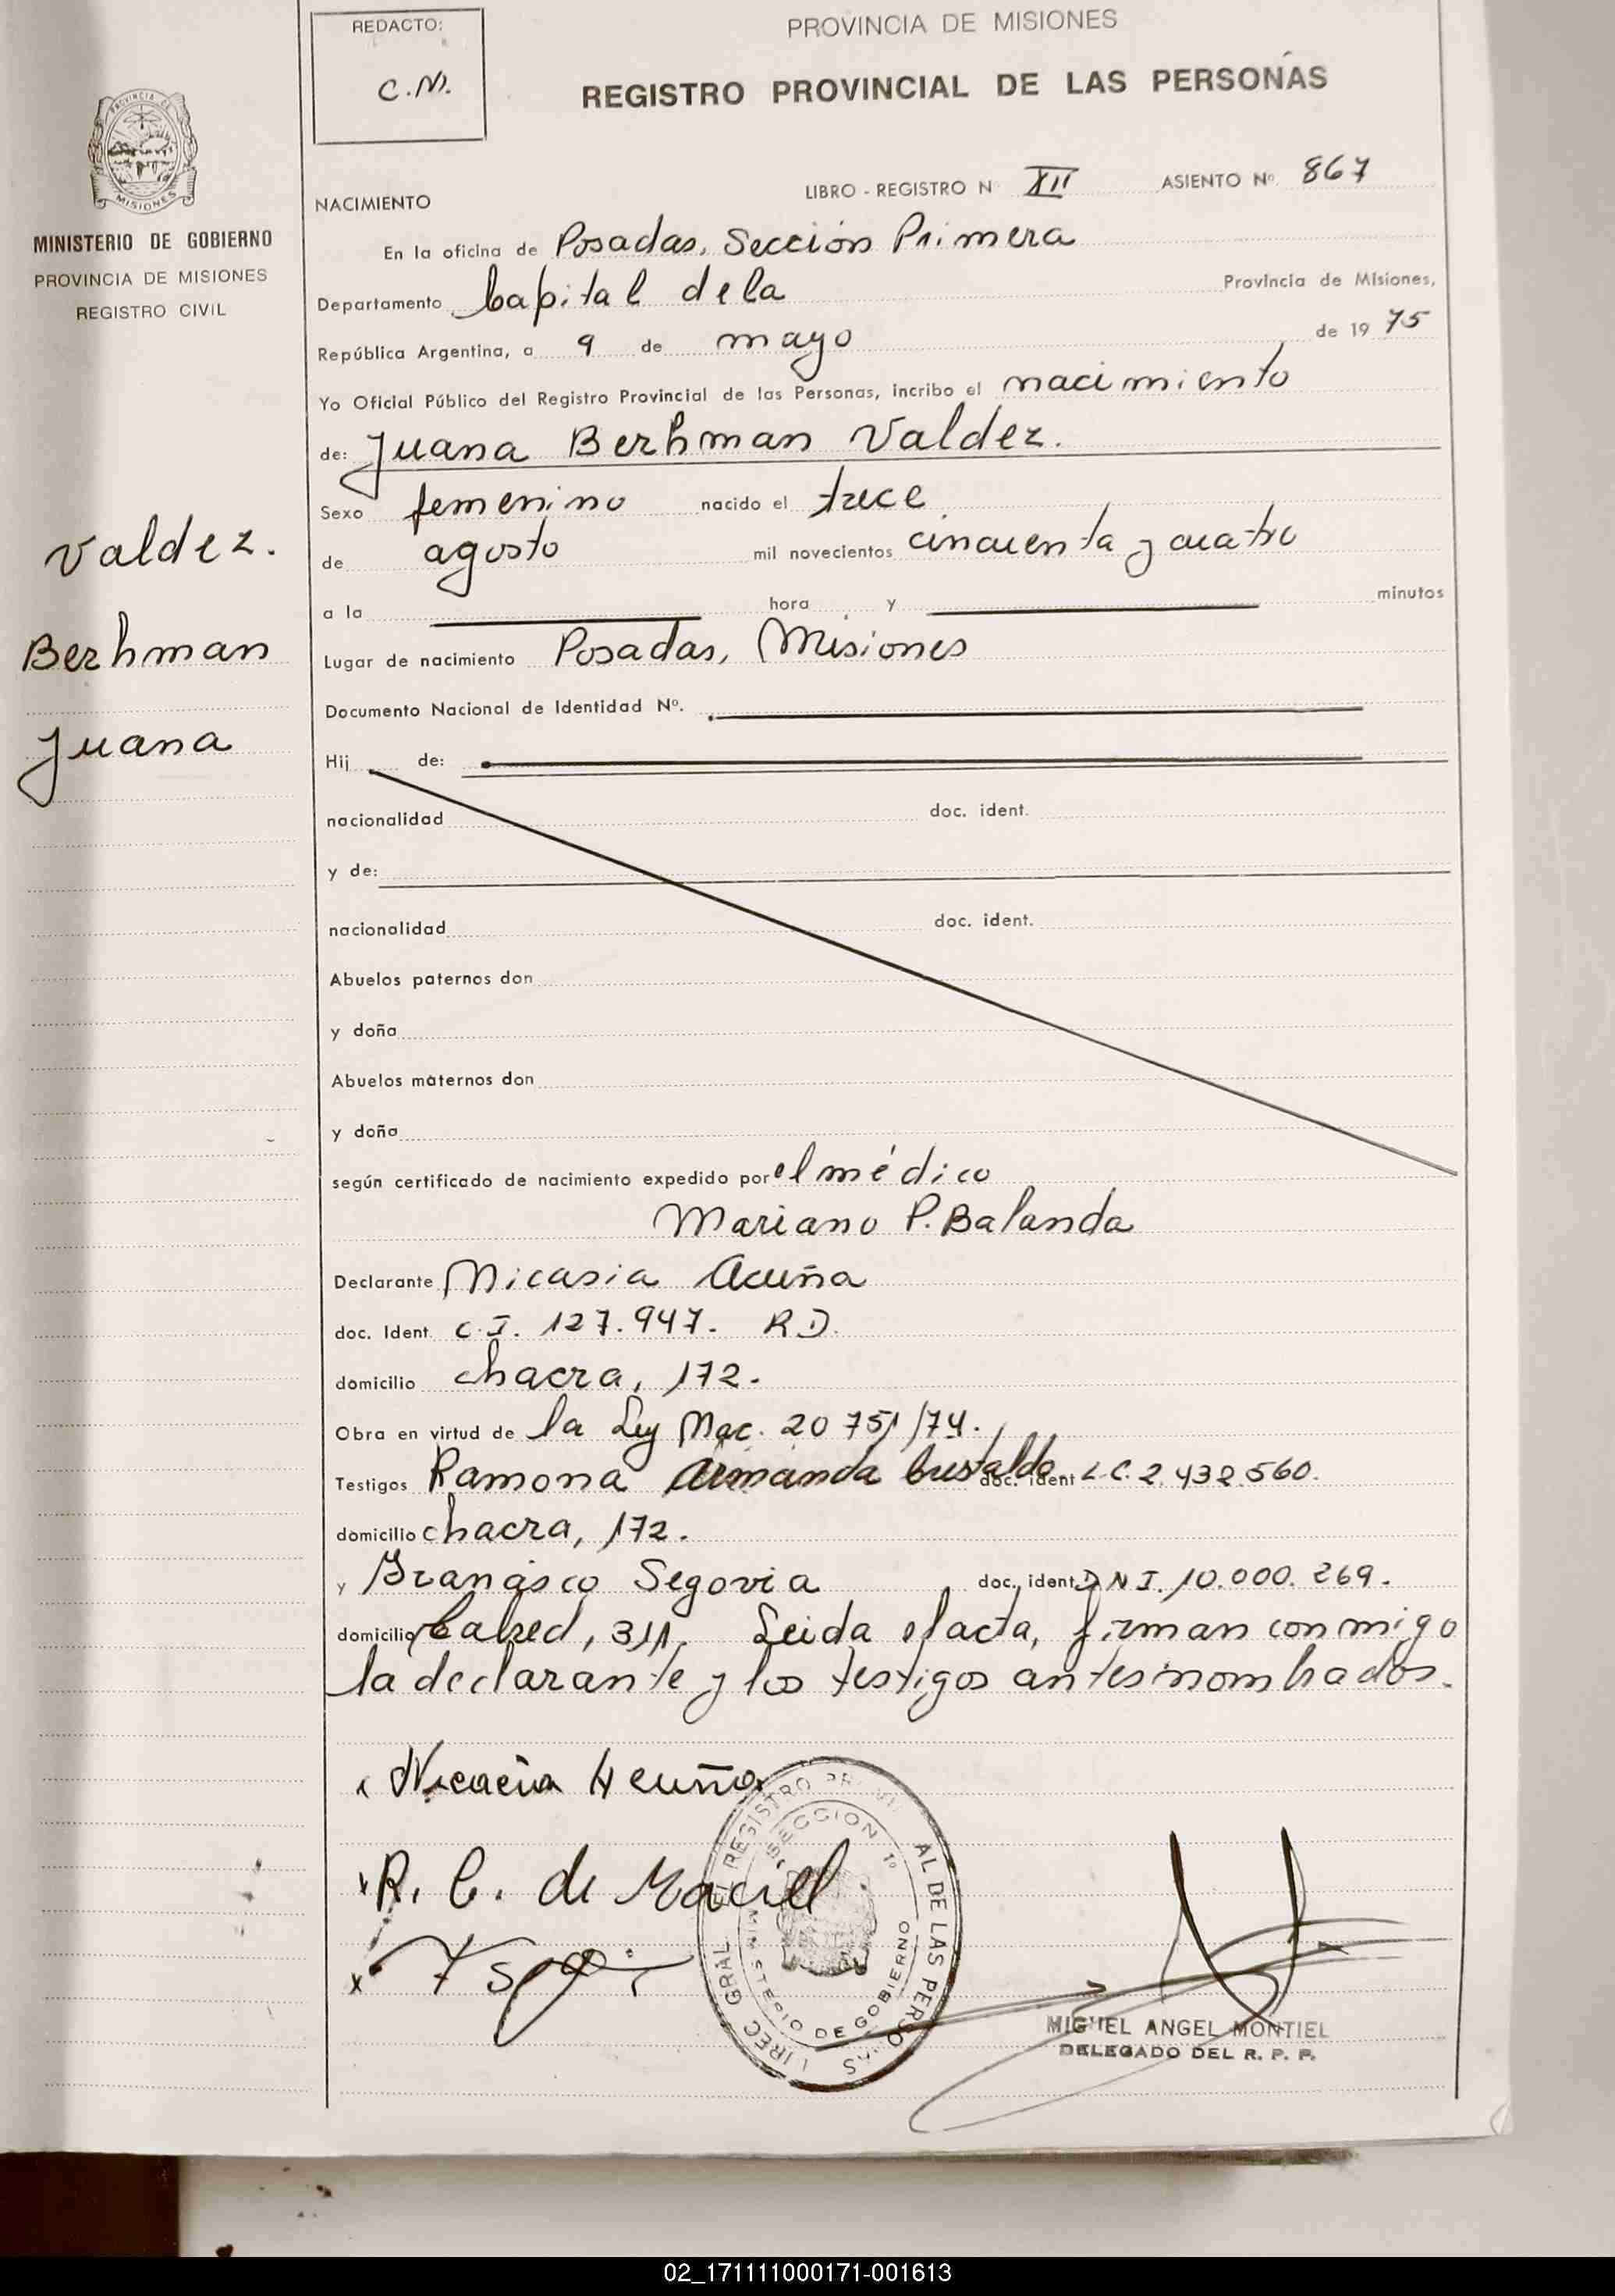 REDACTO:
C.M.
PROVINCIA DE MISIONES
REGISTRO PROVINCIAL DE LAS PERSONAS
PROVINCIA DE
MISIONES
MINISTERIO DE GOBIERNO
PROVINCIA DE MISIONES
REGISTRO CIVIL
LIBRO - REGISTRO N XII ASIENTO Nº 867
NACIMIENTO
En la oficina de Posadas, Sección Primera
Departamento Capital de la Provincia de Misiones,
República Argentina, a 9 de mayo de 1975
Yo Oficial Público del Registro Provincial de las Personas, incribo el nacimiento
de: Juana Berhman Valdez.
Sexo femenino nacido el trece
de agosto mil novecientos cincuenta y cuatro
a la hora y minutos
Valdez.
Berhman
Juana
Lugar de nacimiento Posadas, Misiones
Documento Nacional de Identidad Nº.
Hij de:
nacionalidad doc. ident.
y de:
nacionalidad doc. ident.
Abuelos paternos don
y doña
Abuelos maternos don
y doña
según certificado de nacimiento expedido por el médico
Mariano P. Balanda
Declarante Nicasia Acuña
doc. Ident. C.I. 127.947. R D.
domicilio chacra, 172.
Obra en virtud de la Ley Nac. 20 751/74.
Testigos Ramona Armanda doc. ident L.C. 2.432.560.
domicilio chacra, 172.
y Segovia doc. ident DNI. 10.000.269.
domicilio 311. Leida el acta, firman conmigo
la declarante y los testigos antesnombrados.
Nicacia Acuña
R. C. de Maciel
DIREC. GRAL. DEL REGISTRO PROVINCIAL DE LAS PERSONAS
SECCION 1º
MINISTERIO DE GOBIERNO
MIGUEL ANGEL MONTIEL
DELEGADO DEL R. P. P.
02_171111000171-001613